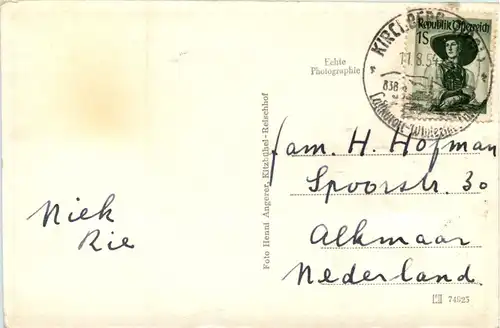 Echte
Photographie
KIRCHBERG
11.8.54
838
Republik Österreich
1S
Fam. H. Hofman
Spoorstr. 30
Alkmaar
Nederland.
Niek
Rie
Foto Henni Angerer, Kitzbühel-Reischhof
74925